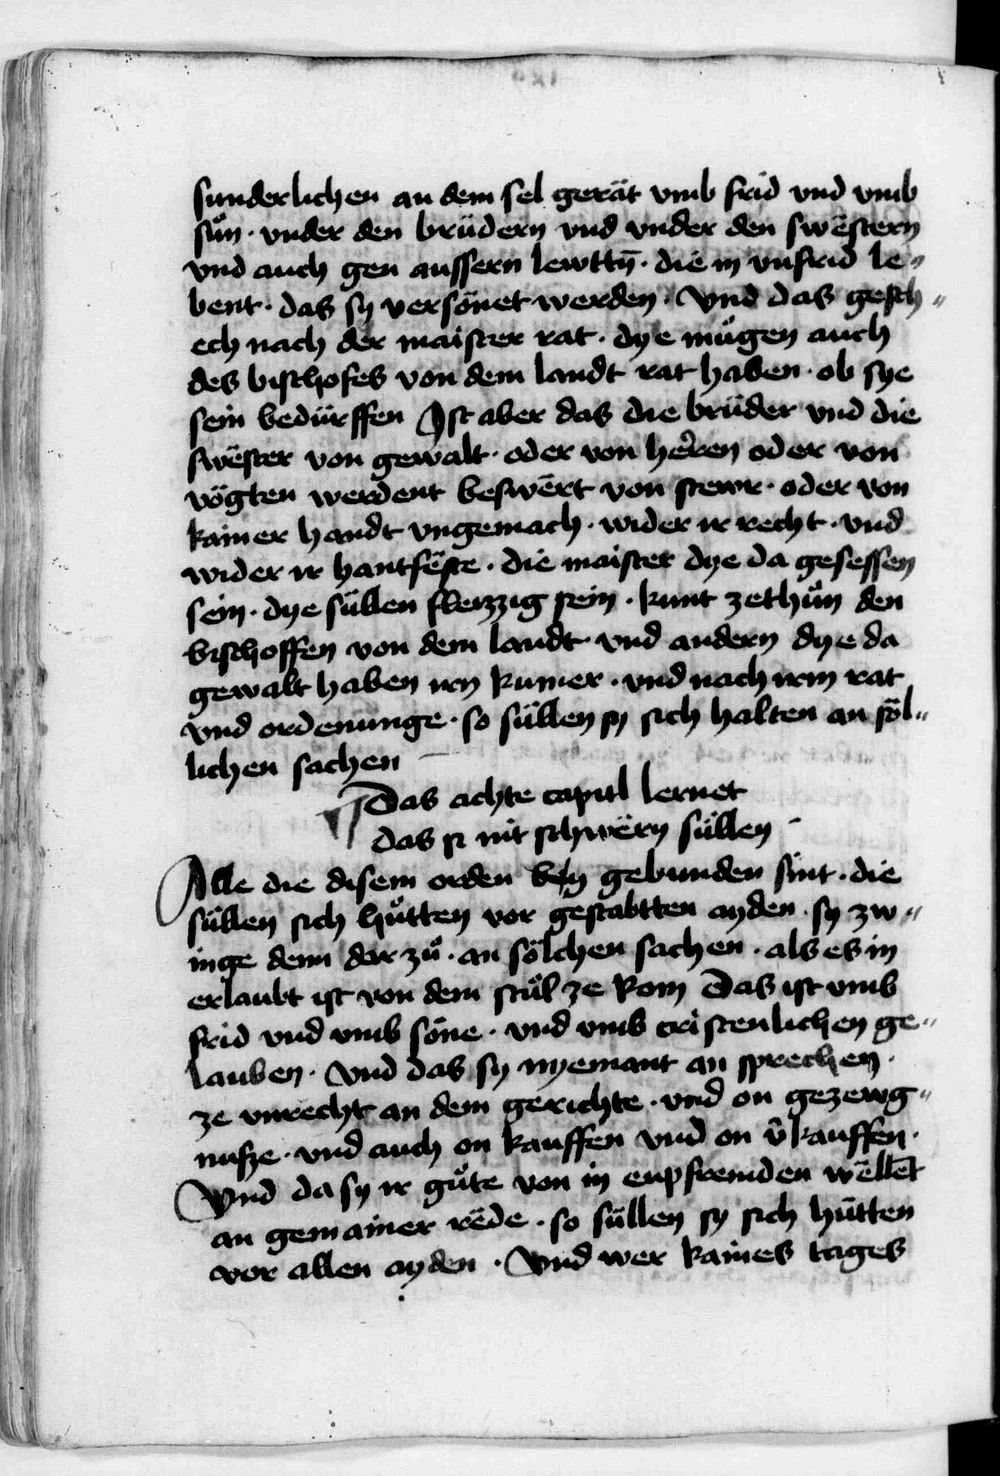 sunderlichen an dem sel gerät vmb frid vnd vmb
sůn · vnder den brüdern vnd vnder den swëstern
vnd auch gen aussern lewttn̄ · die in vnfrid le〃
bent · das sy versönet werden · Vnd das gesch〃
ech nach der maister rat · dye mügen auch
des bischofes von dem landt rat haben · ob sye
sein bedürffen Ist aber das die brüder vnd die
swëster von gewalt · oder von herren oder von
vögten werdent beswërt von stewr · oder von
kainer handt vngemach · wider ir recht · vnd
wider ir hantfëste · die maister dye da gesessen
sein · dye süllen fleizzig sein · kunt zethůn den
bischoffen von dem landt · vnd andern dye da
gewalt haben irn kumer · vnd nach irm rat
vnd ordenunge · so süllen sy sich halten an söl〃
lichen sachen
¶ Das achte capitl lernet
das si nit schwërn süllen
Alle die disem orden bey gebunden sint · die
süllen sich hütten vor gestabtten ayden · sy zw〃
inge denn dar zů · an sölchen sachen · als es in
erlaubt ist von dem stůl ze Rom Das ist vmb
frid vnd vmb söne · vnd vmb cristenlichen ge〃
lauben · Vnd das sy nyemant an sprechen ·
ze vnrecht an dem gerichte · vnd on gezewg〃
nusze · vnd auch on kauffen vnd on v̄kauffen ·
Vnd da sy ir gůte von in enpfremden wëllēt
an gemainer rëde · so süllen sy sich hütten
vor allen ayden · Vnd wer kaines tages